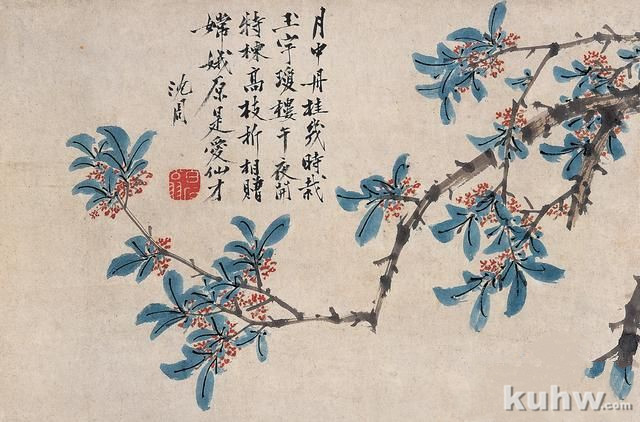 月中丹桂幾時栽
玉宇瓊樓午夜開
特揀高枝折相贈
嫦娥原是愛仙才
沈周
kuhw.com